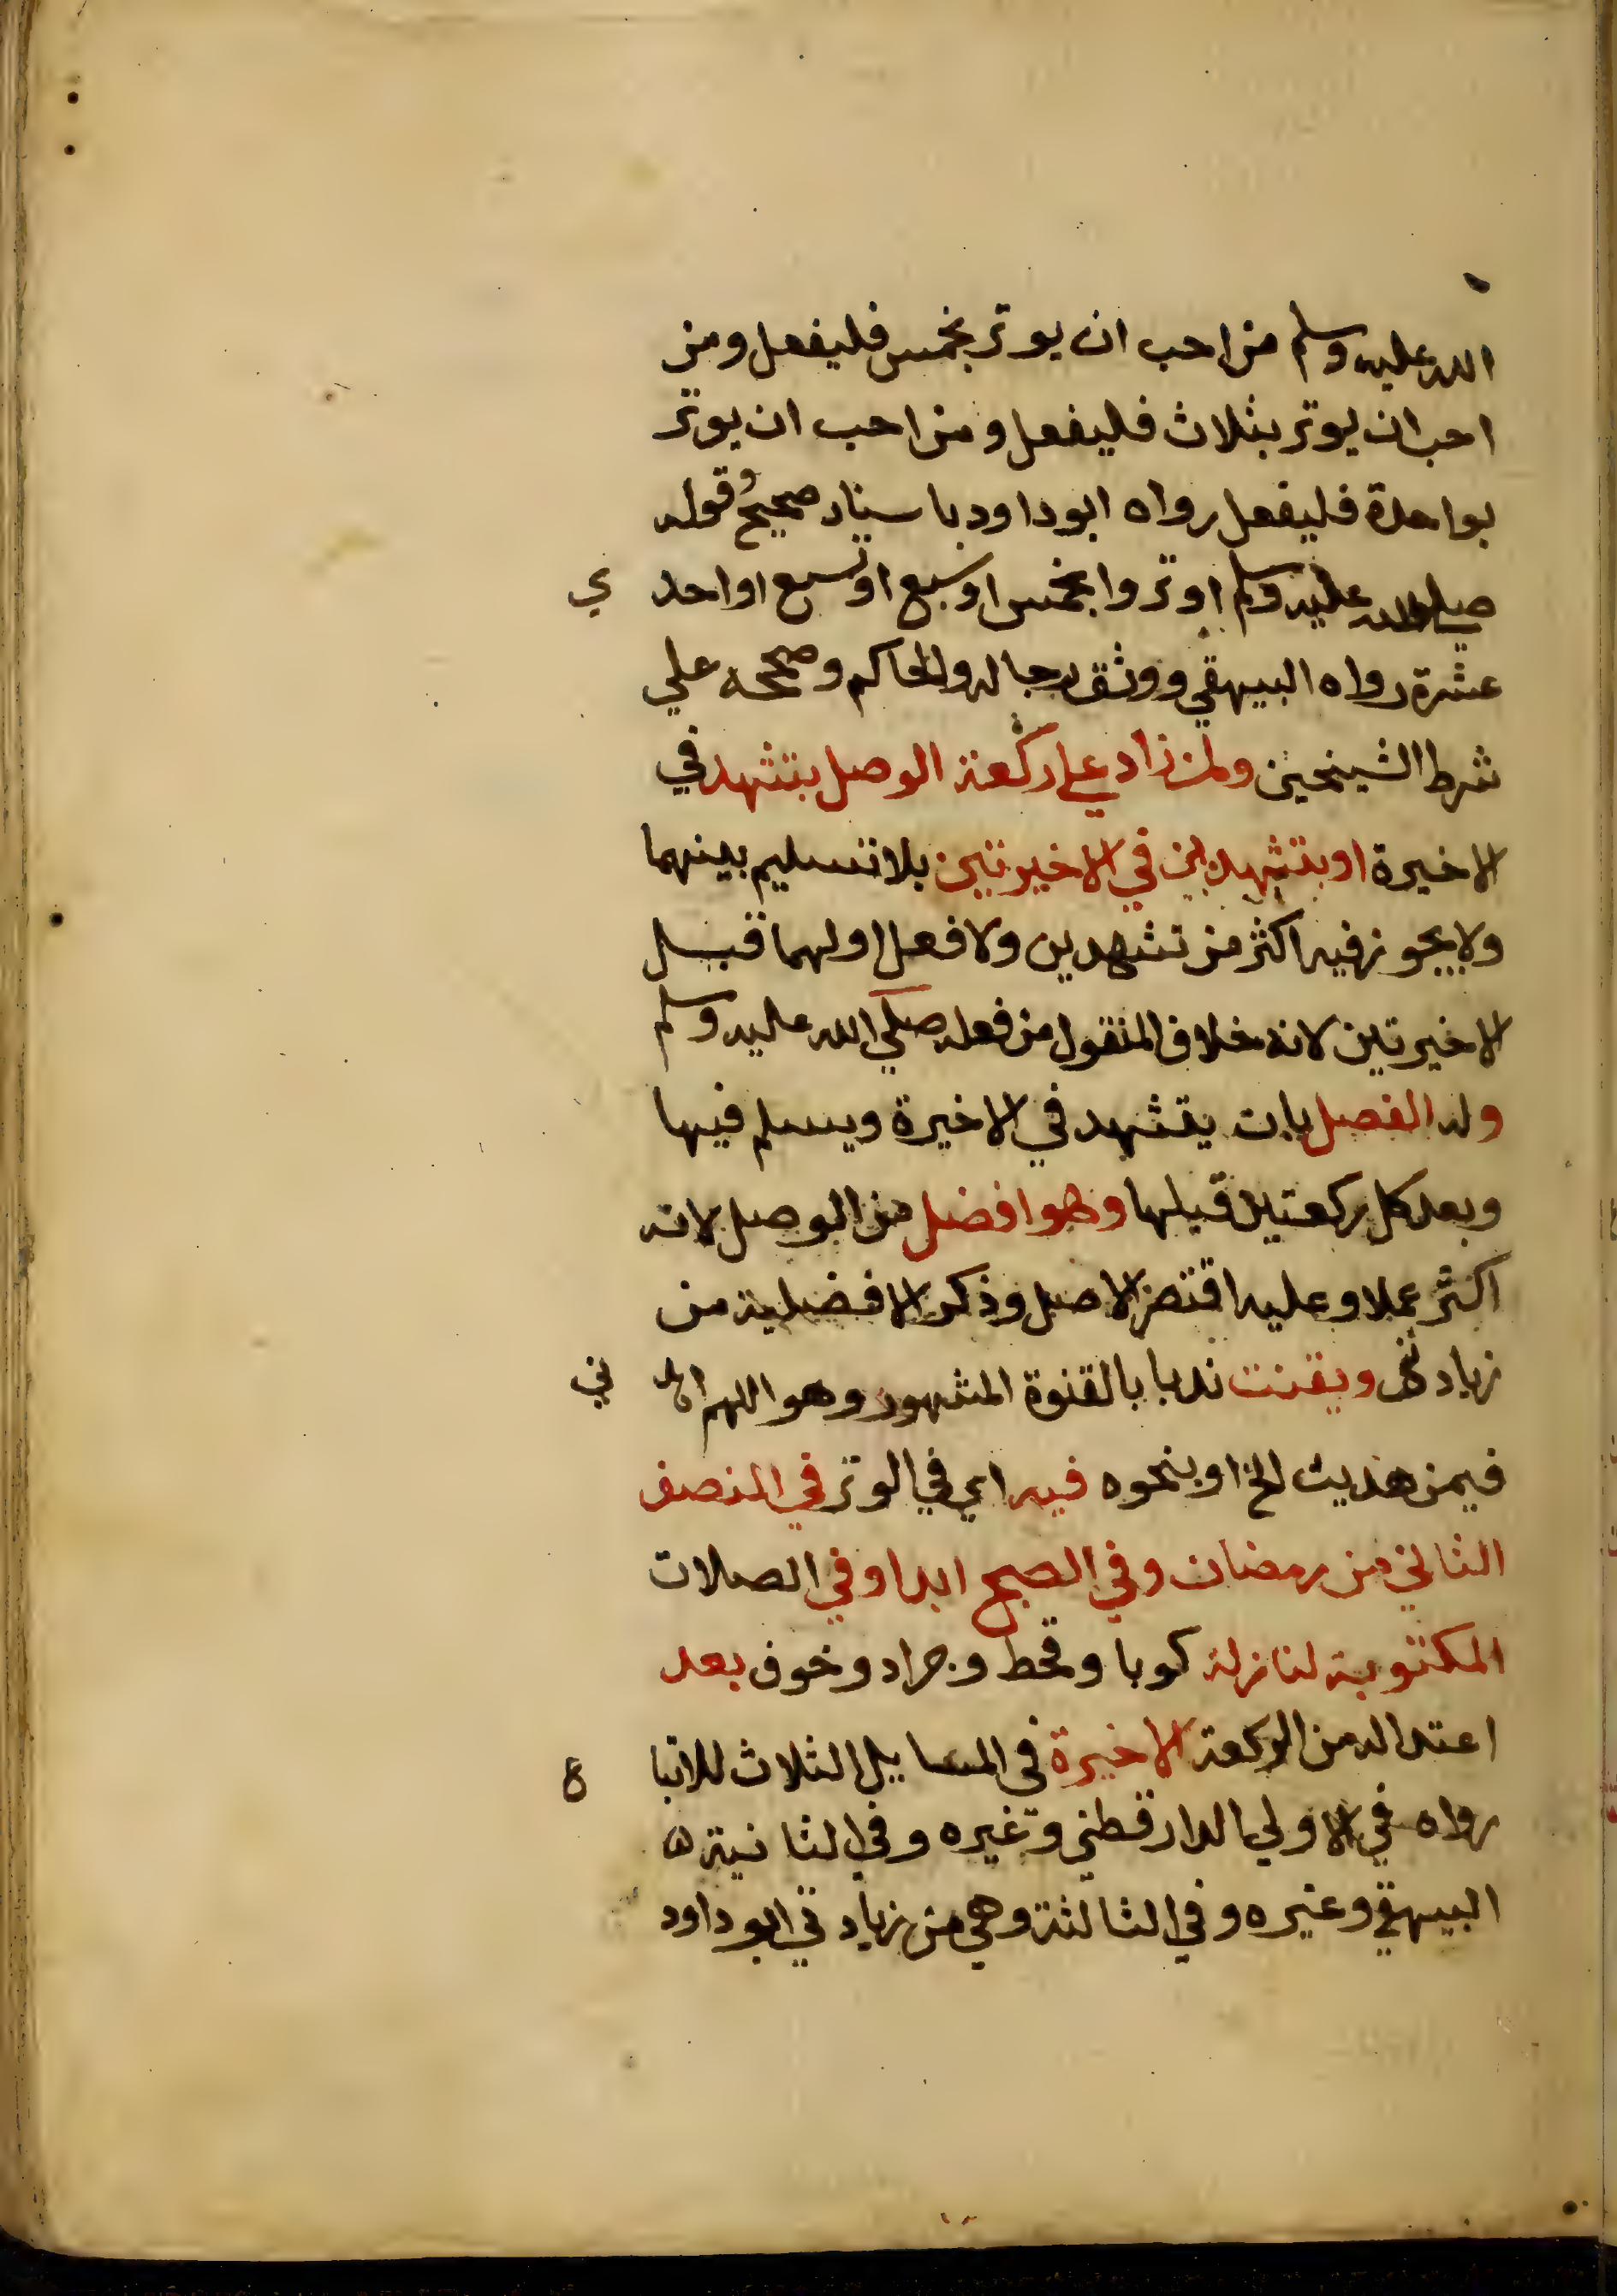 الله عليه وسلم من احب ان يوتر بخمس فليفعل ومن
احب ان يوتر بثلاث فليفعل ومن احب ان يوتر
بواحدة فليفعل رواه ابو داود باسناد صحيح وقوله
صلي الله عليه وسلم اوتروا بخمس او سبع او تسع او احدي
عشرة رواه البيهقي ووثق رجاله والحاكم وصححه علي
شرط الشيخين ولمن زاد علي ركعة الوصل بتشهد في
الاخيرة او بتشهدين في الاخيرتين بلا تسليم بينهما
ولا يجوز فيه اكثر من تشهدين ولا فعل اولهما قبل
الاخيرتين لانه خلاف المنقول من فعله صلي الله عليه وسلم
وله الفصل بان يتشهد في الاخيرة ويسلم فيها
وبعد كل ركعتين قبلها وهو افضل من الوصل لانه
اكثر عملا وعليه اقتصر الاصل وذكر الافضلية من
زيادتي ويقنت ندبا بالقنوة المشهور وهو اللهم اهدني
فيمن هديت الخ او بنحوه فيه اي في الوتر في النصف
الثاني من رمضان وفي الصبح ابدا وفي الصلات
المكتوبة لنازلة كوبا وقحط وجراد وخوف بعد
اعتداله من الركعة الاخيرة في المسايل الثلاث للاتباع
رواه في الاولي الدارقطني وغيره وفي الثانية
البيهقي وغيره وفي الثالثة وهي من زيادتي ابو داود